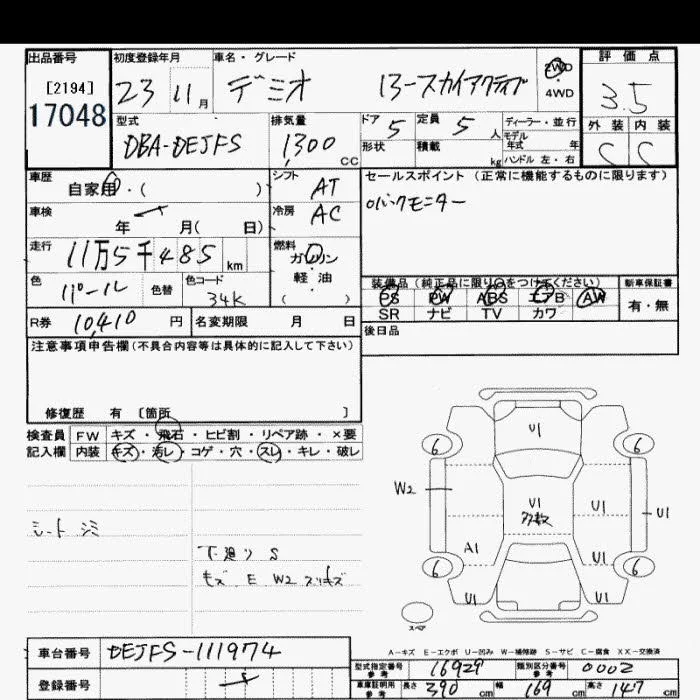 出品番号 初度登録年月 車名・グレード 2WD・4WD 評価点
[2194] 23 11月 デミオ 13-スカイアクティブ 3.5
17048 型式 排気量 ドア 5 定員 5 人 ディーラー・並行 外装 内装
DBA-DEJFS 1,300 CC 形状 積載 kg モデル年式 年 ハンドル 左・右 C C
車歴 自家用・( ) シフト AT セールスポイント(正常に機能するものに限ります)
車検 年 月( 日) 冷房 AC バックモニター
走行 11万5千485 km 燃料 ガソリン・軽油 ( )
色 パール 色替 色コード 34K 装備品(純正品に限り○をつけてください) 新車保証書
PS PW ABS エアB AW 有・無
R券 10,410 円 名変期限 月 日 SR ナビ TV カワ
注意事項申告欄(不具合内容等は具体的に記入して下さい) 後日品
修復歴 有 〔箇所 〕
検査員 FW キズ・飛石・ヒビ割・リペア跡・×要
記入欄 内装 キズ・汚レ・コゲ・穴・スレ・キレ・破レ
シートシミ
下廻り S
キズ、E W2 スリキズ
U1
6 6
W2 U1 多数 U1 U1
A1 U1
6 6
U1 U1
スペア
A-キズ E-エクボ U-凹み W-補修跡 S-サビ C-腐食 XX-交換済
車台番号 DEJFS-111974 型式指定番号 参考 16929 類別区分番号 参考 0002
登録番号 車庫証明用 参考 長さ 390 cm 幅 169 cm 高さ 147 cm